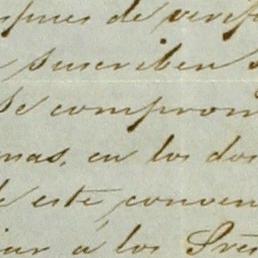 spues de verif
suscriben
Se comprom
nas, en los dos
este conven
á los Sres